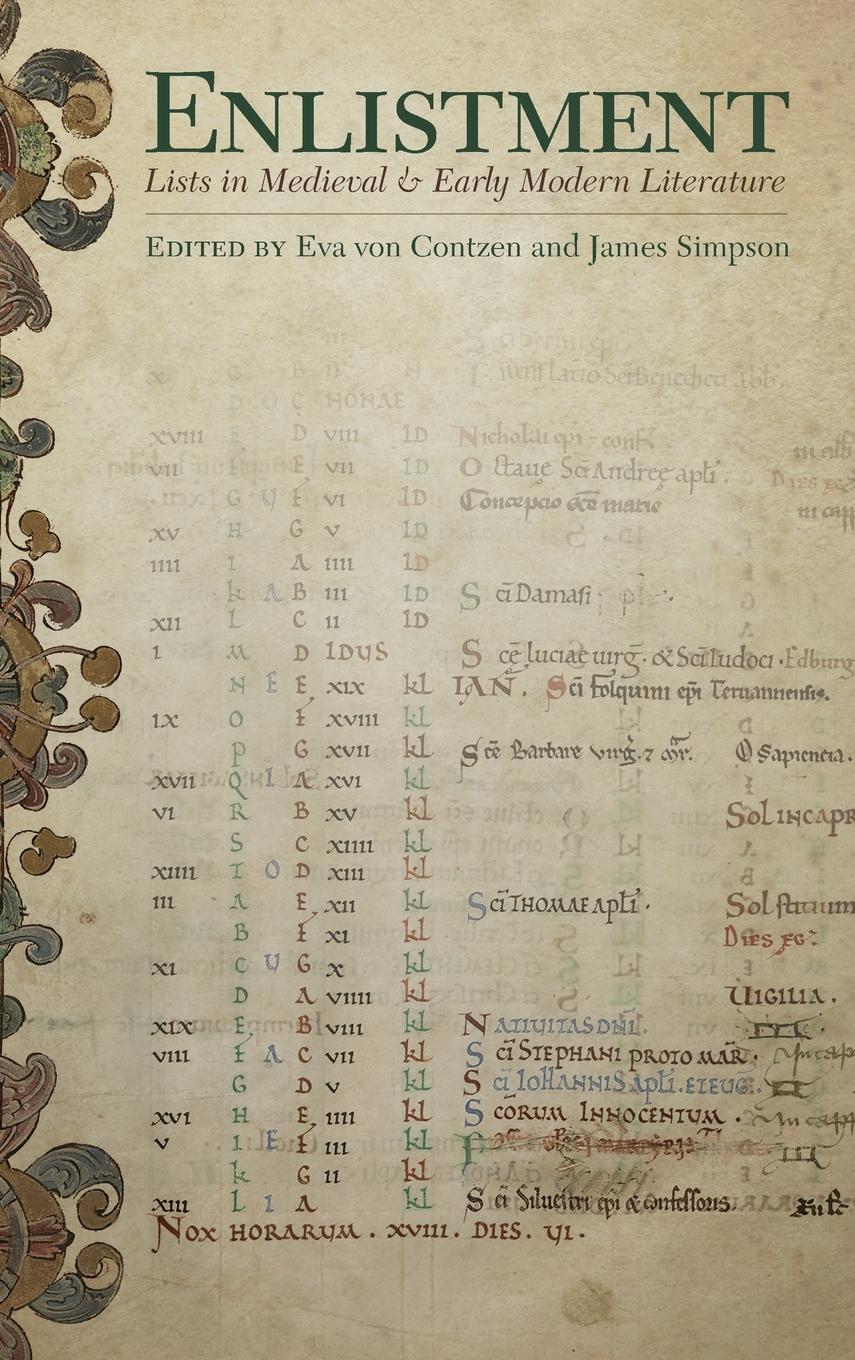 ENLISTMENT
Lists in Medieval & Early Modern Literature
EDITED BY Eva von Contzen and James Simpson
NONAE
XVIII D VIII ID Nicholai epi
VII E VII ID Octaue Sci Andree apli.
G VI ID Concepcio sce marie
XV H G V ID
IIII I A IIII ID
K A B III ID Sci Damasi
XII L C II ID
I M D IDUS Sce luciae uirg. & Sci Iudoci. Edburg
N E E XIX kl IAN. Sci folquini epi Teruannensis.
IX O F XVIII kl
P G XVII kl Sce Barbare virg. 7 mr. O Sapiencia.
XVII Q I A XVI kl
VI R B XV kl Sol IN CAPR
S C XIIII kl
XIIII T O D XIII kl
III A E XII kl Sci THOMAE Apli. Solstitium
B F XI kl Dies eg:
XI C U G X kl
D A VIIII kl UIGILIA.
XIX E B VIII kl NATIUITAS DNI.
VIII F A C VII kl Sci STEPHANI PROTOMAR.
G D V kl Sci IOHANNIS Apli. ET EUG.
XVI H E IIII kl SCORUM INNOCENTUM.
V I E F III kl
K G II kl
XIII L I A kl Sci Siluestri epi & confessoris.
NOX HORARUM. XVIII. DIES. UI.